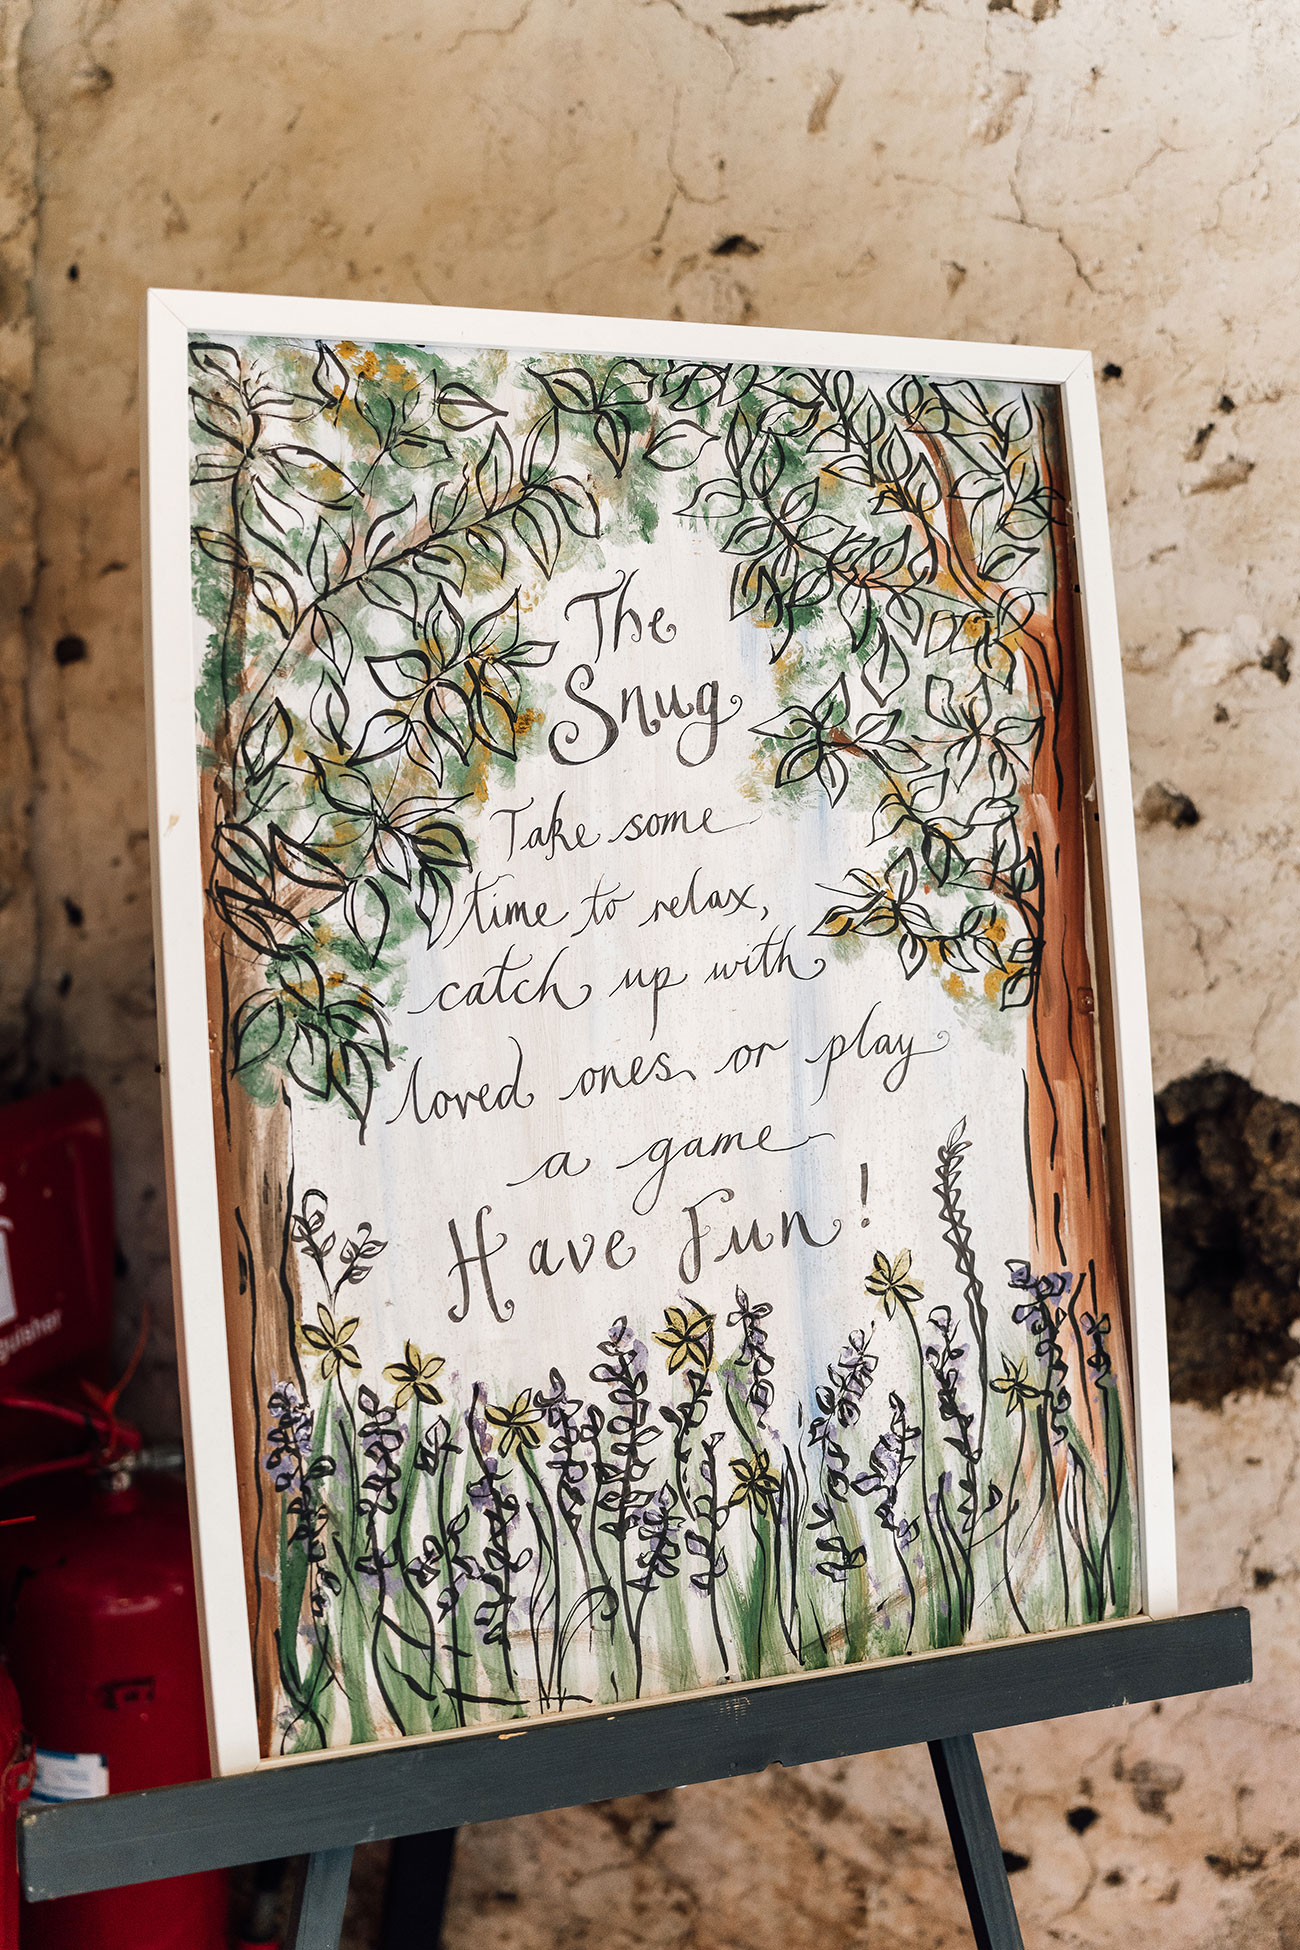 The
Snug
Take some
time to relax,
catch up with
loved ones or play
a game
Have Fun!